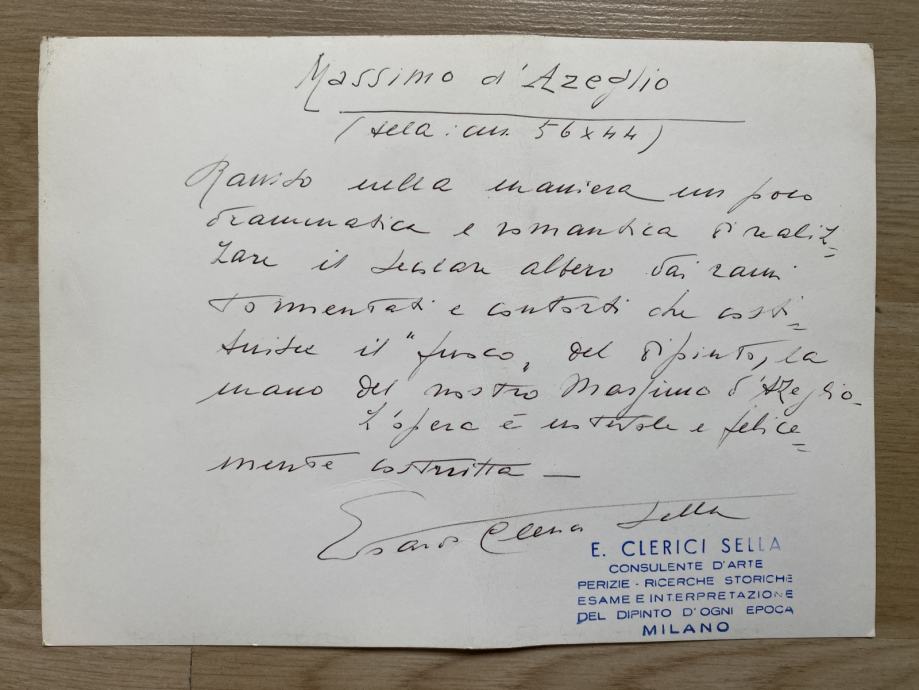 Massimo d'Azeglio
(tela: cm. 56x44)
Ravviso nella maniera un poco
drammatica e romantica di realiz=
zare il secolare albero dai rami
tormentati e contorti che costi=
tuisce il "fuoco" del dipinto, la
mano del nostro Massimo d'Azeglio.
L'opera è notevole e felice=
mente costruita —
Clerici Sella
E. CLERICI SELLA
CONSULENTE D'ARTE
PERIZIE - RICERCHE STORICHE
ESAME E INTERPRETAZIONE
DEL DIPINTO D'OGNI EPOCA
MILANO